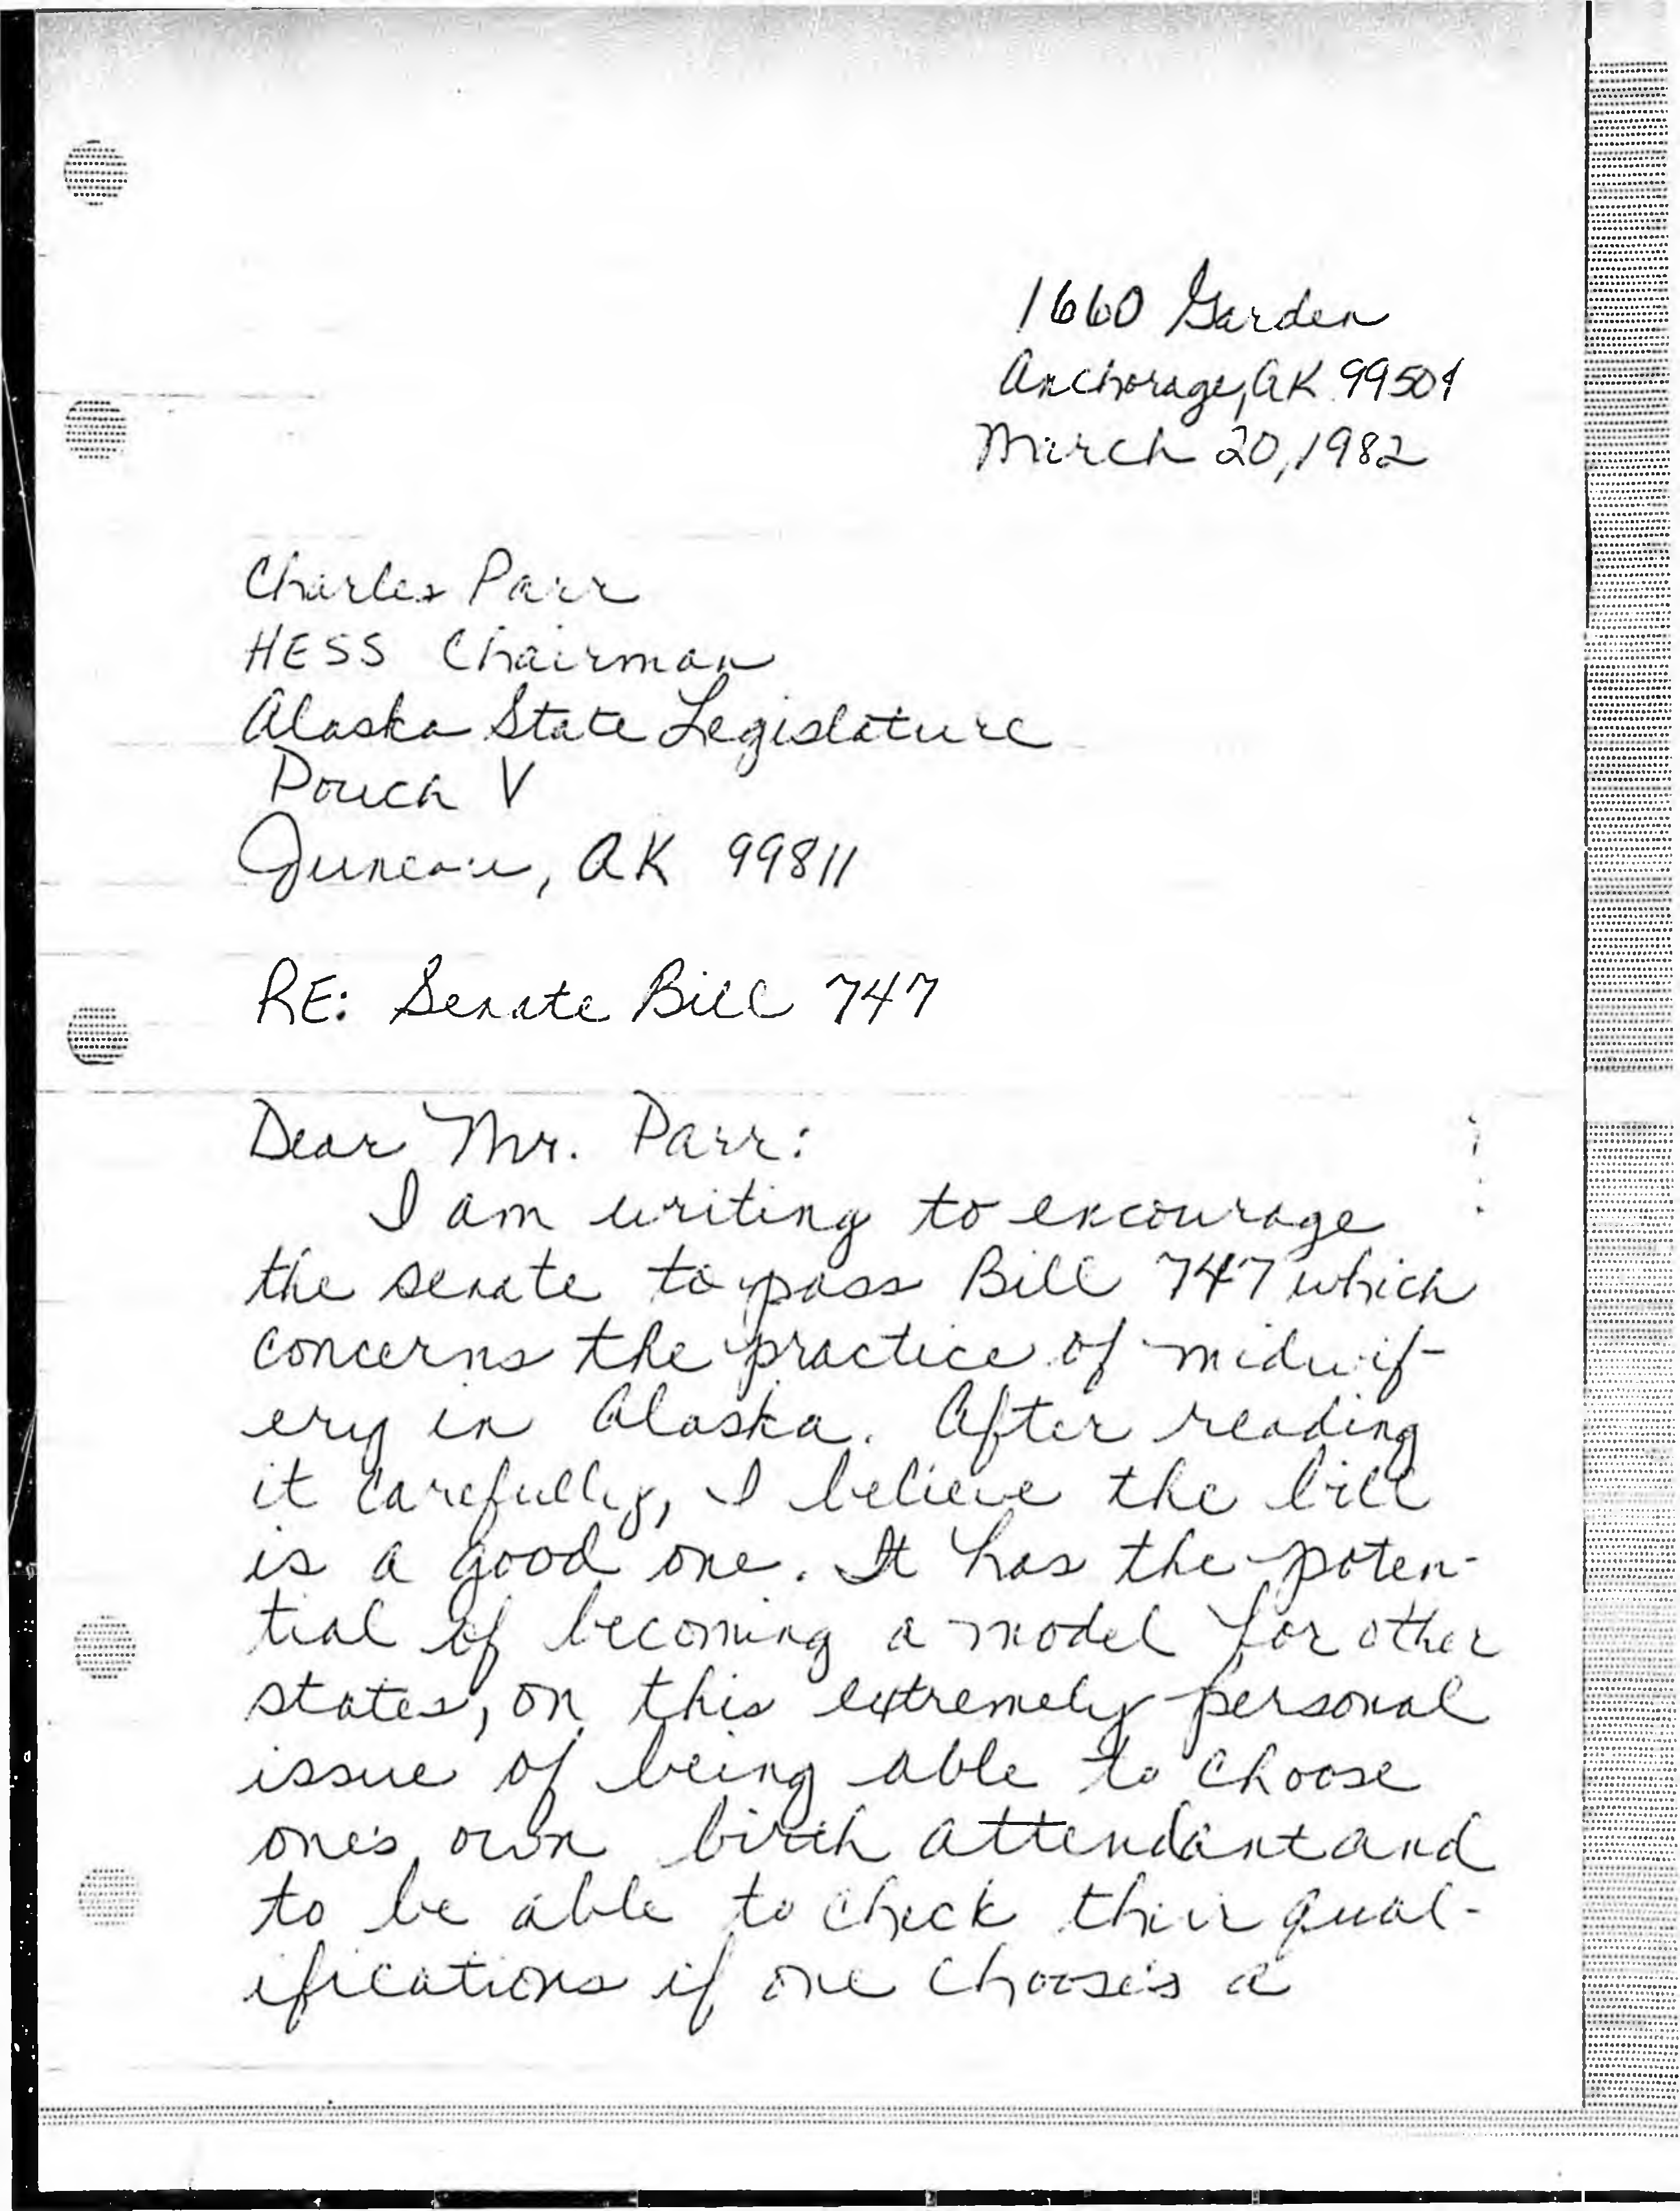 1660 Garden
Anchorage, AK 99504
March 20, 1982
Charles Parr
HESS Chairman
Alaska State Legislature
Pouch V
Juneau, AK 99811
RE: Senate Bill 747
Dear Mr. Parr:
I am writing to encourage
the senate to pass Bill 747 which
concerns the practice of midwif-
ery in Alaska. After reading
it carefully, I believe the bill
is a good one. It has the poten-
tial of becoming a model for other
states, on this extremely personal
issue of being able to choose
one's own birth attendant and
to be able to check their qual-
ifications if one chooses a